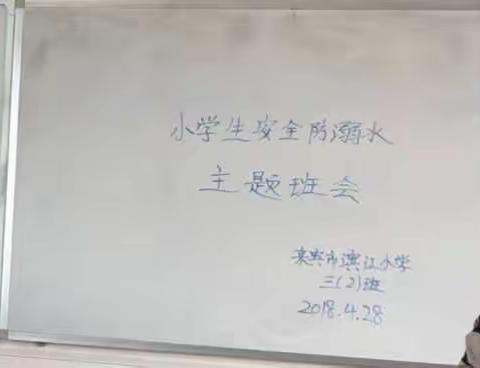 小学生安全防溺水
主题班会
来宾市滨江小学
三(2)班
2018.4.28